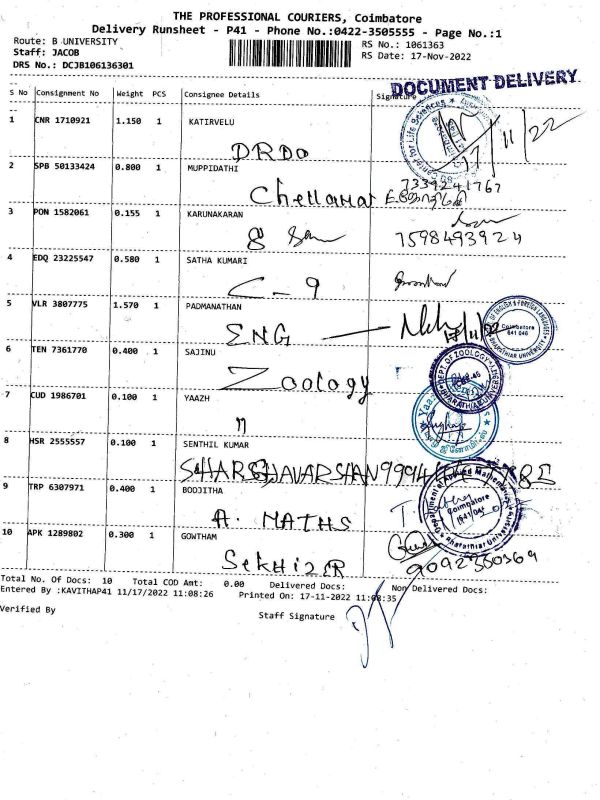 THE PROFESSIONAL COURIERS, Coimbatore
Delivery Runsheet - P41 - Phone No.:0422-3505555 - Page No.:1
Route: B UNIVERSITY
RS No.: 1061363
Staff: JACOB
RS Date: 17-Nov-2022
DRS No.: DCJB106136301
DOCUMENT DELIVERY
S No Consignment No Weight PCS Consignee Details Signature
1 CNR 1710921 1.150 1 KATIRVELU
DRDO 17/11/22
2 SPB 50133424 0.800 1 MUPPIDATHI
7339241767
3 PON 1582061 0.155 1 KARUNAKARAN
7598493924
4 EDQ 23225547 0.580 1 SATHA KUMARI
C-9
5 VLR 3807775 1.570 1 PADMANATHAN
ENG
OF ENGLISH & FOREIGN LANGUAGES
Coimbatore
641 046
BHARATHIAR UNIVERSITY
6 TEN 7361770 0.400 1 SAJINU
Zoology
DEPT. OF ZOOLOGY
7 CUD 1986701 0.100 1 YAAZH
8 HSR 2555557 0.100 1 SENTHIL KUMAR
9 TRP 6307971 0.400 1 BOOJITHA
A. MATHS
Department of Applied Mathematics
Coimbatore
Bharathiar University
10 APK 1289802 0.300 1 GOWTHAM
9092360569
Total No. Of Docs: 10 Total COD Amt: 0.00 Delivered Docs: Non Delivered Docs:
Entered By :KAVITHAP41 11/17/2022 11:08:26 Printed On: 17-11-2022 11:08:35
Verified By
Staff Signature